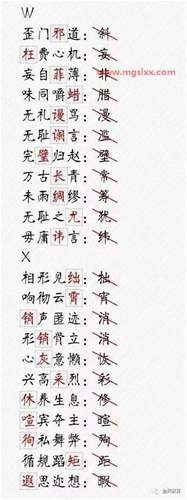 W
歪门邪道：斜
枉费心机：妄
www.mgslxx.com
妄自菲薄：非
味同嚼蜡：腊
无礼谩骂：漫
无耻谰言：滥
完璧归赵：壁
万古长青：常
未雨绸缪：筹
无耻之尤：犹
毋庸讳言：纬
X
相形见绌：拙
响彻云霄：宵
销声匿迹：消
形销骨立：消
心灰意懒：恢
兴高采烈：彩
休养生息：修
喧宾夺主：暄
徇私舞弊：殉
循规蹈矩：距
遐思迩想：暇